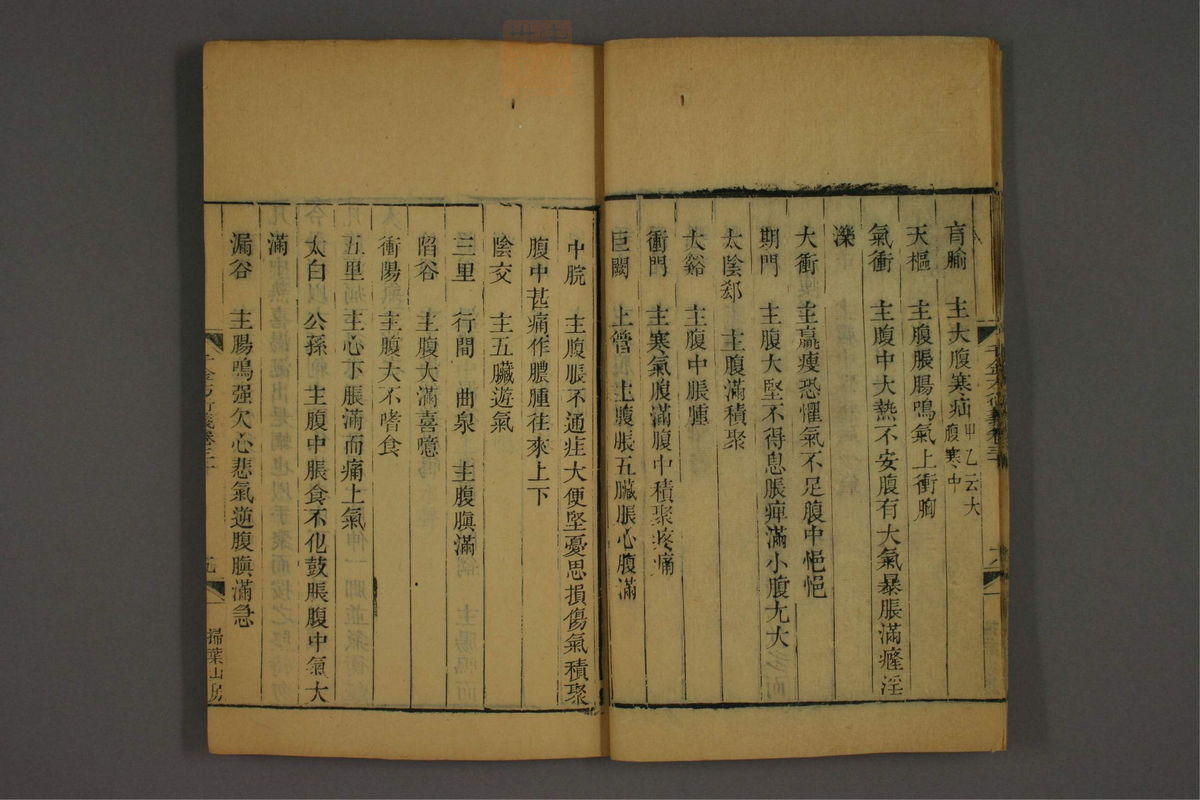 肓腧　主大腹寒疝甲乙云大腹寒中
天樞　主腹脹腸鳴氣上衝胸
氣衝　主腹中大熱不安腹有大氣暴脹滿癃淫
濼
大衝　主羸瘦恐懼氣不足腹中悒悒
期門　主腹大堅不得息脹痺滿小腹尢大
太陰郄　主腹滿積聚
大谿　主腹中脹腫
衝門　主寒氣腹滿腹中積聚疼痛
巨闕　上管　主腹脹五臟脹心腹滿
中脘　主腹脹不通疰大便堅憂思損傷氣積聚
腹中甚痛作膿腫往來上下
陰交　主五臟遊氣
三里　行間　曲泉　主腹䐜滿
陷谷　主腹大滿喜噫
衝陽　主腹大不嗜食
五里　主心下脹滿而痛上氣
太白　公孫　主腹中脹食不化鼓脹腹中氣大
滿
漏谷　主腸鳴强欠心悲氣逆腹䐜滿急
千金方衍義卷三十
九
掃葉山房